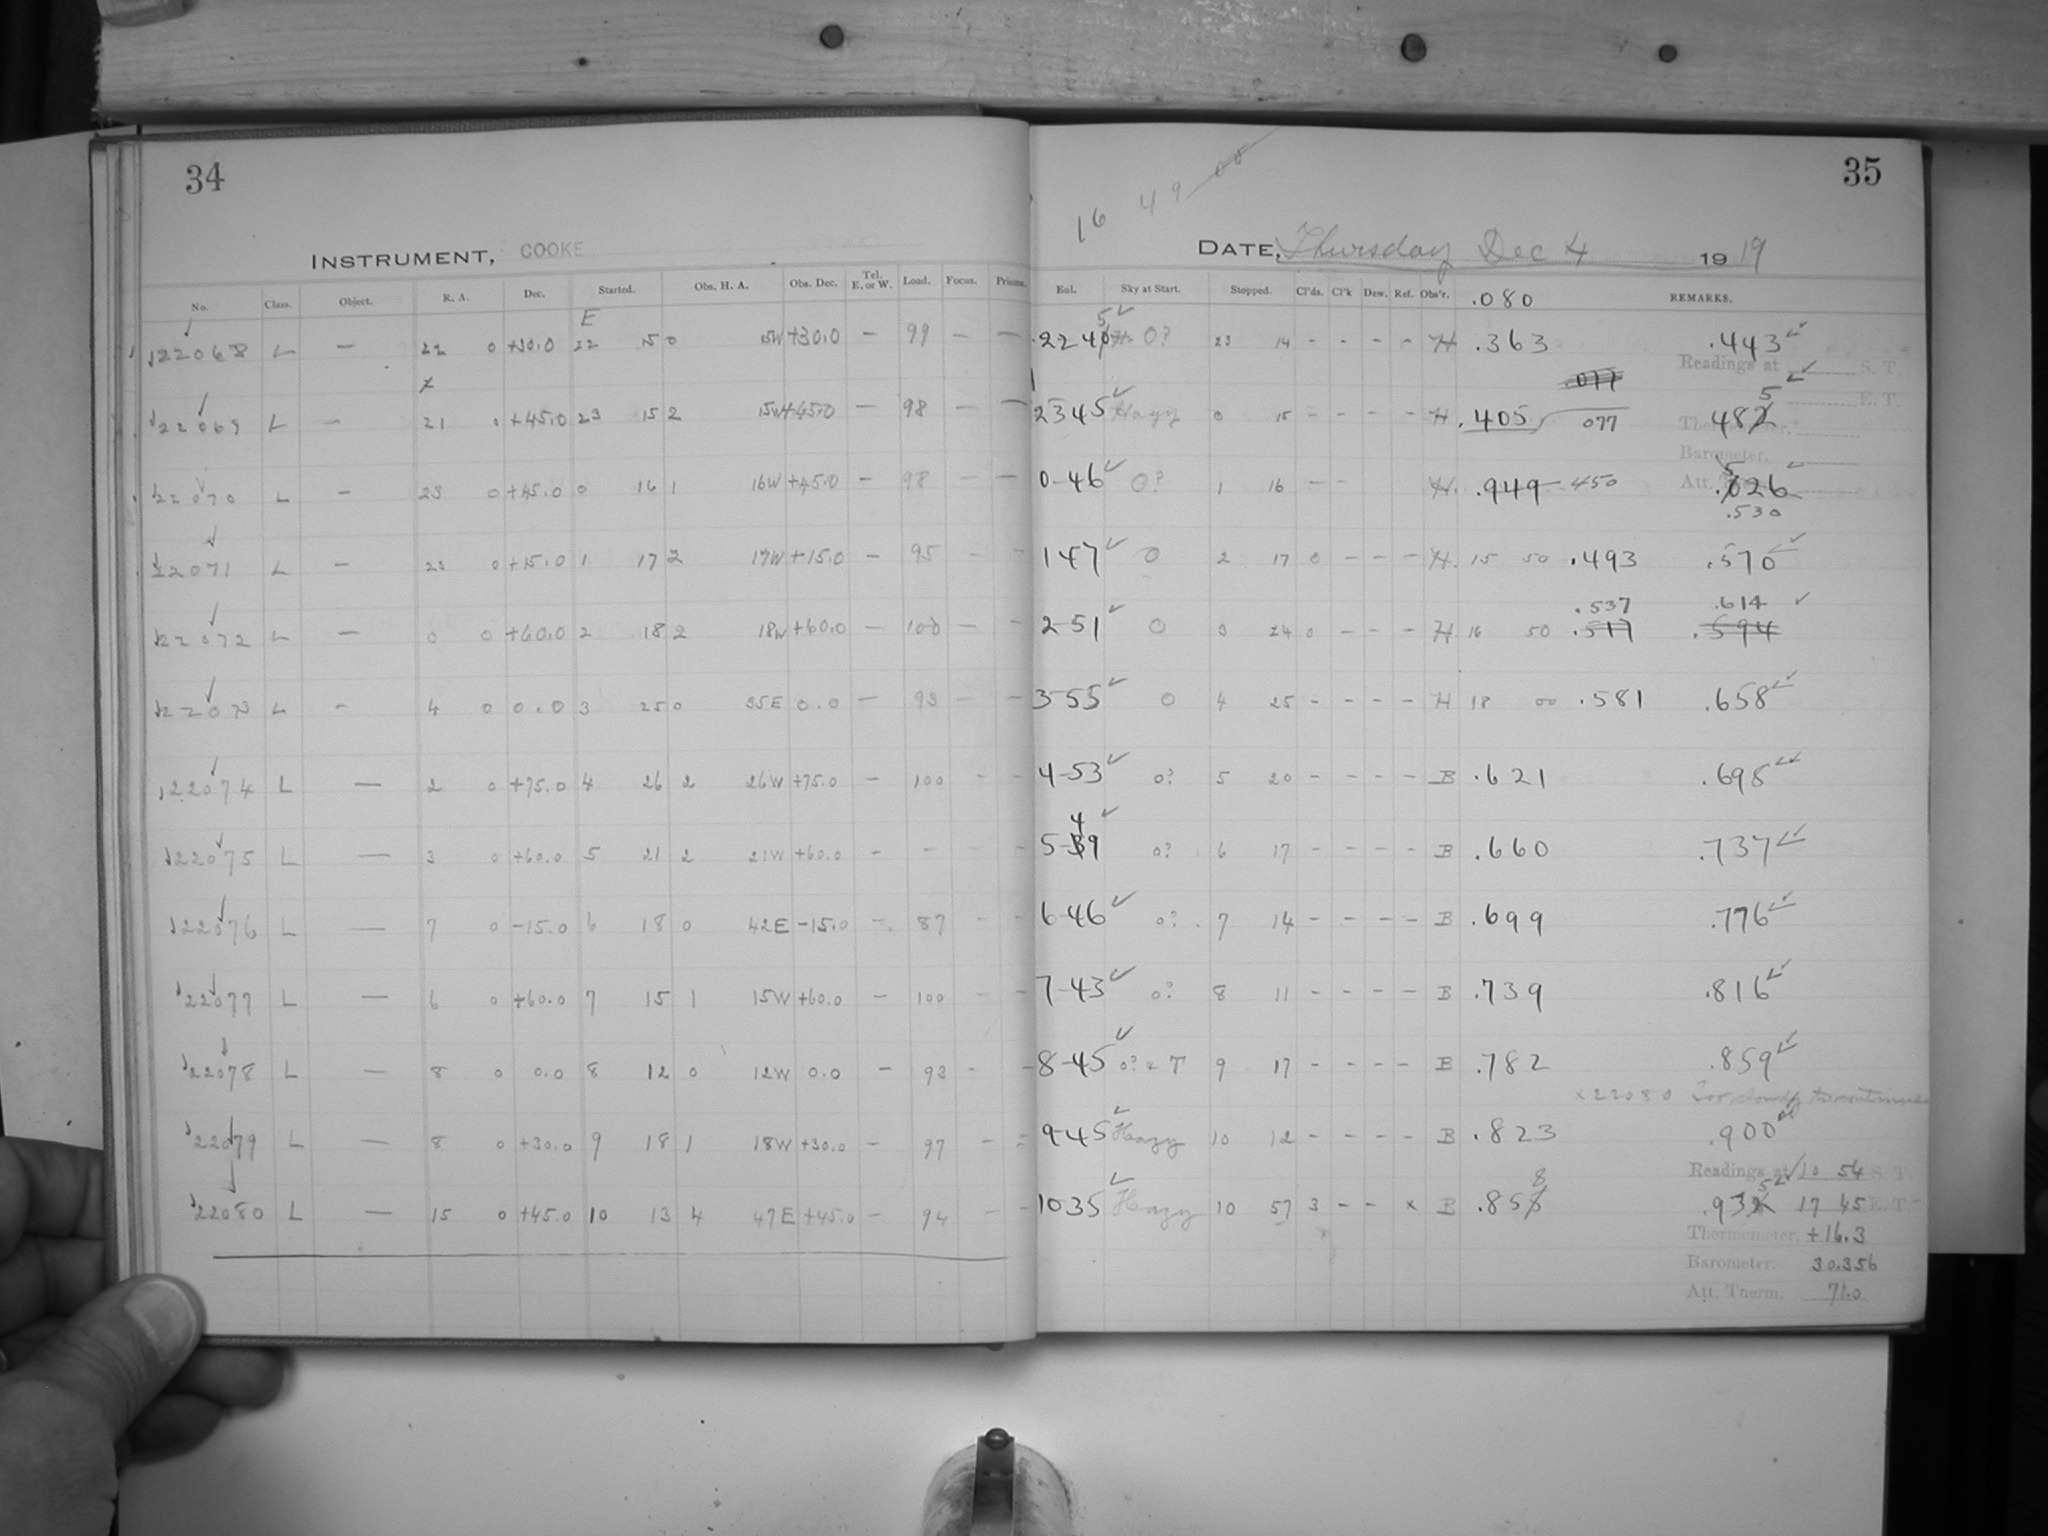 34
INSTRUMENT, COOKE
No. Class. Object. R. A. Dec. Started. Obs. H. A. Obs. Dec. Tel. E. or W. Load. Focus. Prisms.
E
22068 L — 22 0 +30.0 22 15 0 15W +30.0 — 99 — —
22069 L — 21 0 +45.0 23 15 2 15W +45.0 — 98 — —
22070 L — 23 0 +45.0 0 16 1 16W +45.0 — 98 — —
22071 L — 23 0 +15.0 1 17 2 17W +15.0 — 95 — —
22072 L — 0 0 +60.0 2 18 2 18W +60.0 — 100 — —
22073 L — 4 0 0.0 3 25 0 35E 0.0 — 93 — —
22074 L — 2 0 +75.0 4 26 2 26W +75.0 — 100 — —
22075 L — 3 0 +60.0 5 21 2 21W +60.0 — — — —
22076 L — 7 0 -15.0 6 18 0 42E -15.0 — 87 — —
22077 L — 6 0 +60.0 7 15 1 15W +60.0 — 100 — —
22078 L — 8 0 0.0 8 12 0 12W 0.0 — 93 — —
22079 L — 8 0 +30.0 9 18 1 18W +30.0 — 97 — —
22080 L — 15 0 +45.0 10 13 4 47E +45.0 — 94 — —
35
16 49 00
DATE, Thursday Dec 4 1919
Eol. Sky at Start. Stopped. Cl'ds. Cl'k Dew. Ref. Obs'r. .080 REMARKS.
2245 O? 23 14 - - - - H .363 .443
Readings at S. T.
077
E. T.
2345 Hazy 0 15 - - - - H .405 077 .485
Thermometer.
Barometer.
0-46 O? 1 16 - - H. .949 450 .526
Att. Therm.
.530
147 0 2 17 0 - - - H. 15 50 .493 .570
.537 .614
2-51 0 3 24 0 - - - H 16 50 .517 .594
3-55 0 4 25 - - - - H 18 00 .581 .658
4-53 0? 5 20 - - - - B .621 .698
5-49 0? 6 17 - - - - B .660 .737
6-46 0? 7 14 - - - - B .699 .776
7-43 0? 8 11 - - - - B .739 .816
8-45 0? & T 9 17 - - - - B .782 .859
x 22080 Too cloudy to continue
9-45 Hazy 10 12 - - - - B .823 .900
Readings at 10 54 S. T.
1035 Hazy 10 57 3 - - x B .858 .935
17 45 E. T.
Thermometer. +16.3
Barometer. 30.356
Att. Therm. 71.0